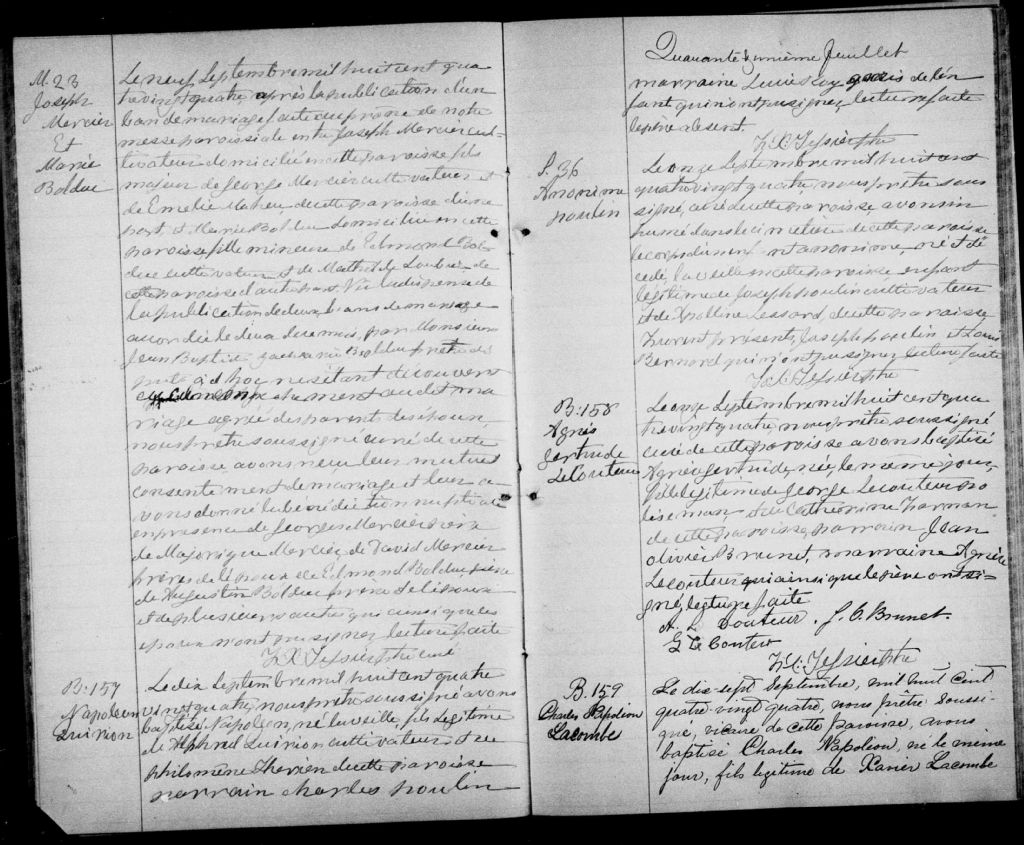 M. 23
Joseph
Mercier
Et
Marie
Bolduc
Le neuf Septembre mil huit cent qua
tre vingt quatre, après la publication d'un
ban de mariage faite au prone de notre
messe paroissiale entre Joseph Mercier cul-
tivateur domicilié en cette paroisse fils
majeur de George Mercier cultivateur et
de Emelie Maheu, de cette paroisse d'une
part et Marie Bolduc domiciliée en cette
paroisse fille mineure de Edmond Bol
duc cultivateur et de Mathilde Loubier de
cette paroisse d'autre part Vu la dispense de
la publication de deux bans de mariage
accordée le deux du mois, par Monsieur
Jean Baptiste Zacharie Bolduc prêtre dé
puté ad hoc ne s'étant découvert
aucun empêchement au dit ma
riage agréé des parents des époux,
nous prêtre soussigné curé de cette
paroisse avons reçu leur mutuel
consentement de mariage et leur a
vons donné la bénédiction nuptiale
en présence de George Mercier père
de Majorique Mercier, de David Mercier
frères de l'époux de Edmond Bolduc père
de Augustin Bolduc frère de l'épouse
et de plusieurs autres qui ainsi que les
époux n'ont pu signer lecture faite
Z.X. Tessier ptre curé
B. 157
Napoleon
Quirion
Le dix septembre mil huit cent quatre
vingt quatre, nous prêtre soussigné avons
baptisé Napoléon, né la veille, fils légitime
de Quirion cultivateur et de
philomène Therien de cette paroisse
parrain charles poulin
Quarante & unième feuillet
marraine Louise Lay de l'en
fant qui n'ont pu signer, lecture faite
le père absent.
Tessier ptre
S. 36
Anonime
poulin
Le onze Septembre mil huit cent
quatre vingt quatre, nous prêtre sous
signé, curé de cette paroisse, avons in
humé dans le cimetière de cette paroisse
le corps d'un enfant anonime, né et dé
cédé, la veille en cette paroisse enfant
légitime de Joseph poulin cultivateur
et de Apolline Lessard, de cette paroisse
Furent présents, Joseph poulin et Louis
Bernard qui n'ont pu signer lecture faite
Tessier ptre
B. 158
Agnès
gertrude
LeCouteur
Le onze Septembre mil huit cent qua
tre vingt quatre nous prêtre soussigné
curé de cette paroisse avons baptisé
Agnès gertrude, née le même jour
fille légitime de George Lecouteur po
liseman et de Catherine Harman
de cette paroisse, parrain Jean
olivier Brunet, marraine Agnès
Lecouteur qui ainsi que le père ont si-
gné, lecture faite
A. L. Couteur. J. O. Brunet.
G Le Couteur
Tessier ptre
B. 159
Charles Napoleon
Lacombe
Le dix-sept Septembre, mil huit cent
quatre-vingt quatre, nous prêtre soussi-
gné, vicaire de cette paroisse, avons
baptisé Charles Napoléon, né le même
jour, fils légitime de Xavier Lacombe